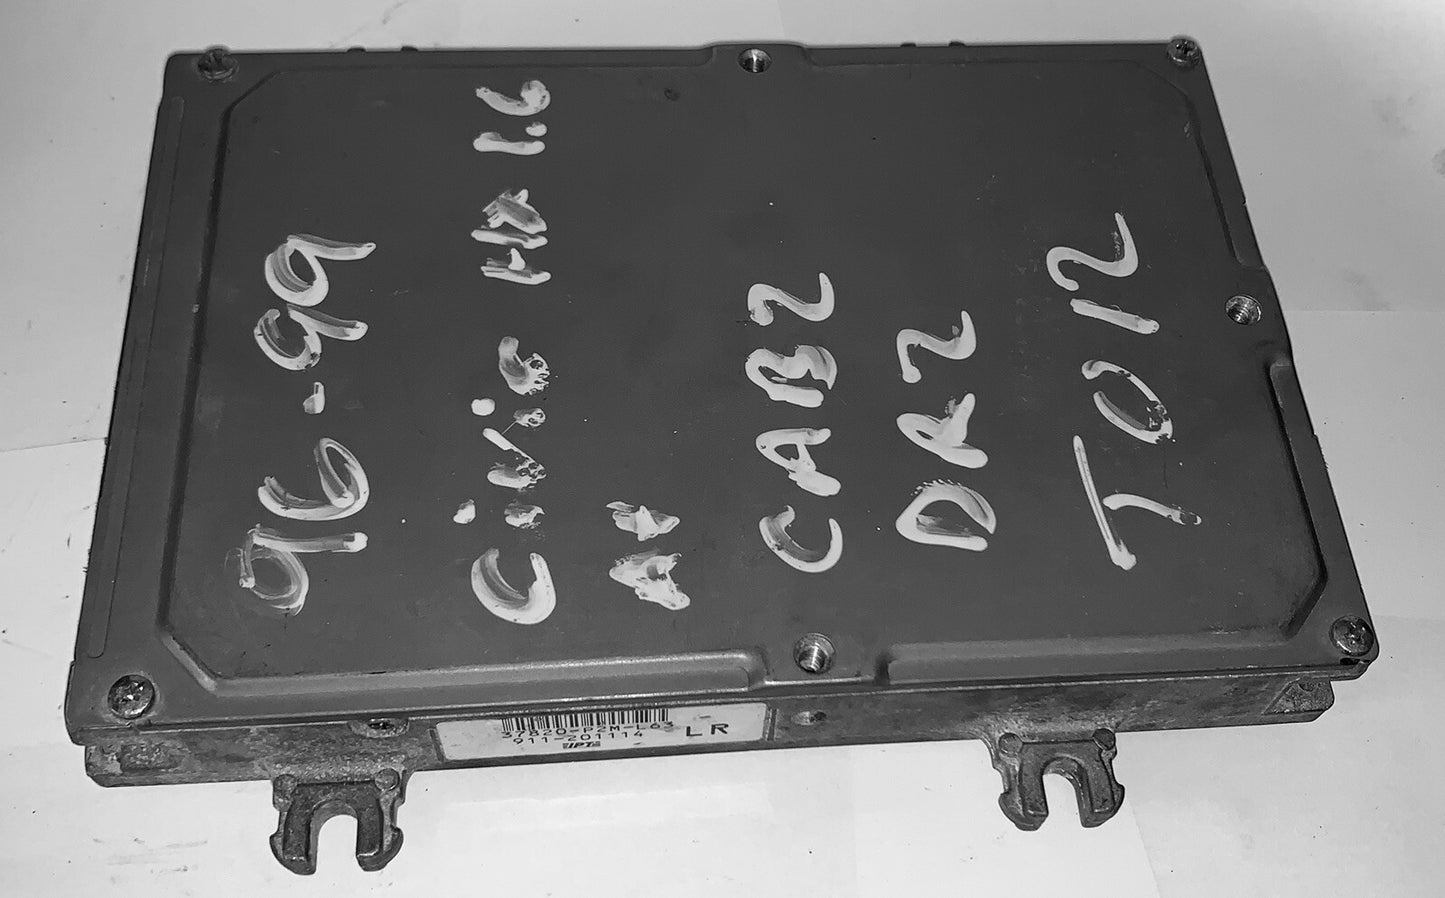 96-99
Civic HX 1.6
At
CAB2
DR2
T012
37820-P2M-L63
911-201114
LR